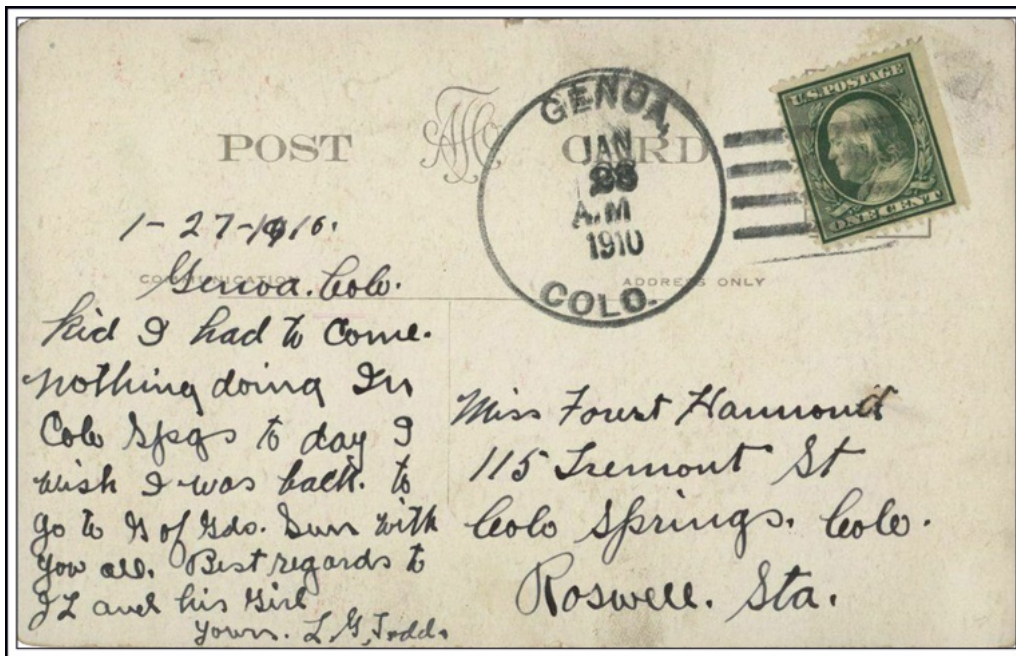 POST CARD
GENOA,
JAN
28
A.M
1910
COLO.
U.S. POSTAGE
ONE CENT
1-27-1910.
COMMUNICATION
ADDRESS ONLY
Genoa. Colo.
Kid I had to Come.
nothing doing In
Colo Spgs to day I
wish I was back. to
go to G of Gds. Sun with
you all. Best regards to
J L and his Girl
yours. L. G. Todd.
Miss Forest Hammond
115 Tremont St
Colo Springs. Colo.
Roswell. Sta.